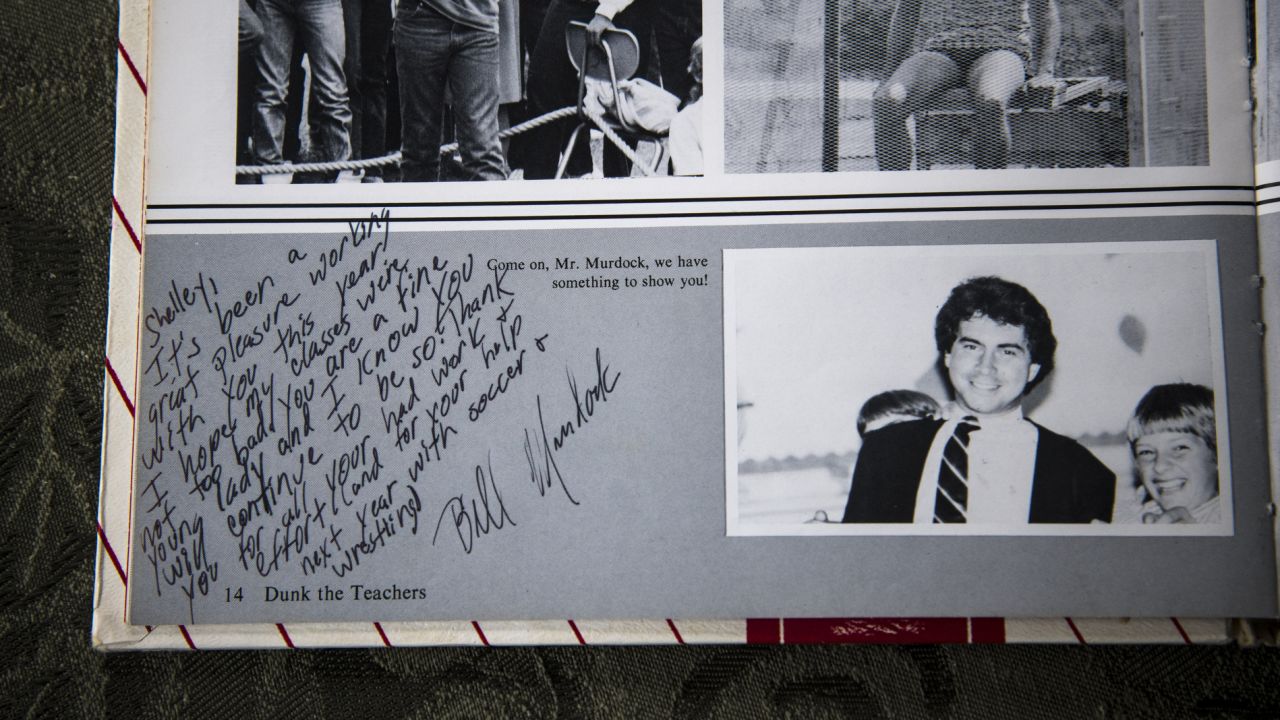 Come on, Mr. Murdock, we have
something to show you!
Shelley,
It's been a
great pleasure working
with you this year!
I hope my classes were
not too bad! You are a fine
young lady and I know you
will continue to be so. Thank
you for all your hard work &
effort! (and for your help
next year with soccer &
wrestling)
Bill Murdock
14 Dunk the Teachers